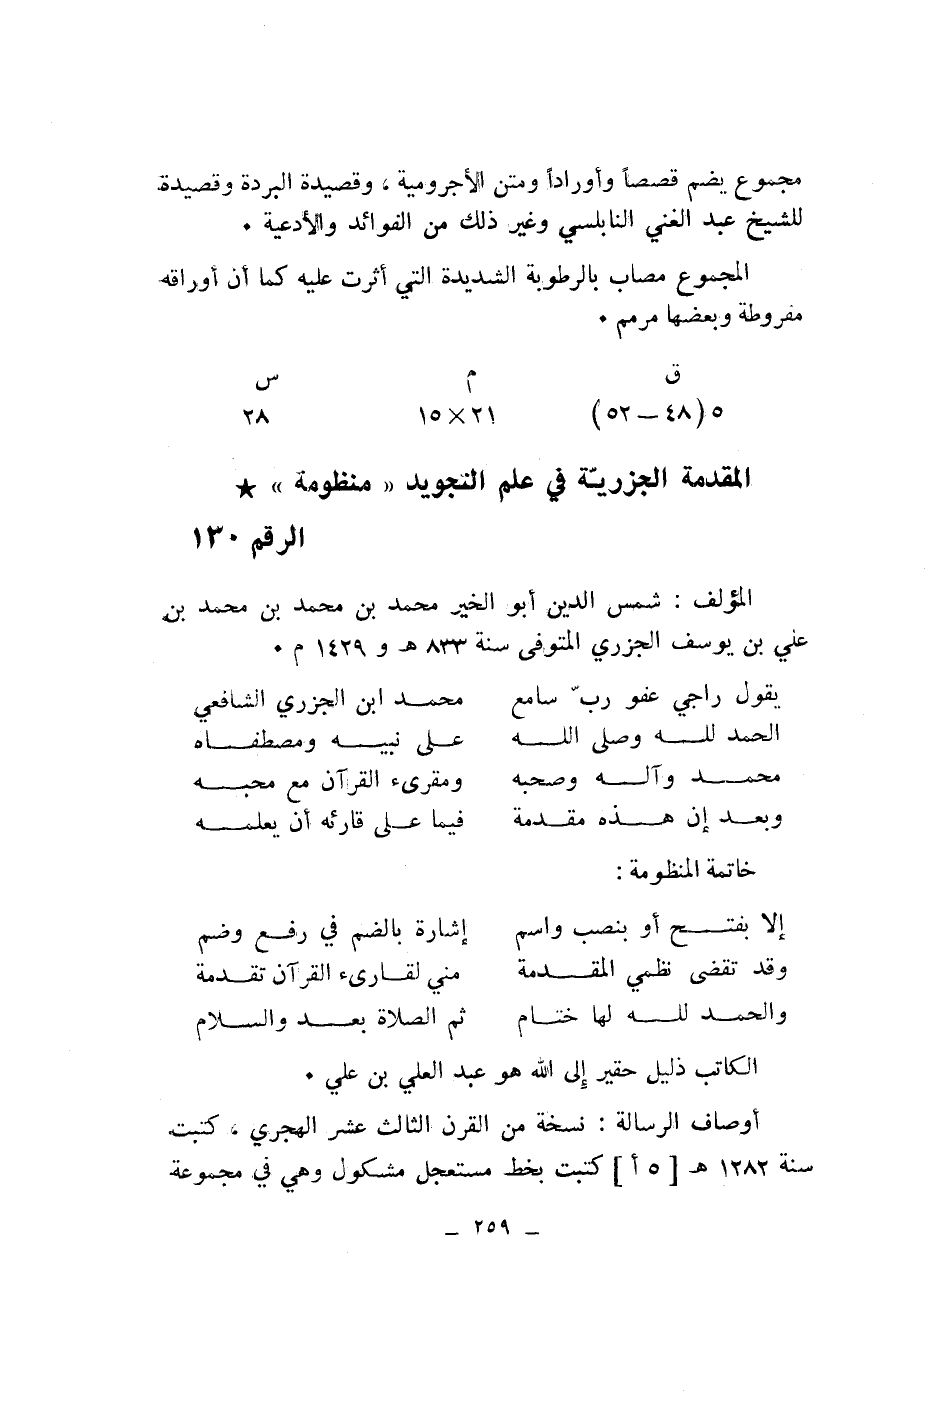 مجموع يضم قصصاً وأوراداً ومتن الأجرومية ، وقصيدة البردة وقصيدة
للشيخ عبد الغني النابلسي وغير ذلك من الفوائد والأدعية .
المجموع مصاب بالرطوبة الشديدة التي أثرت عليه كما أن أوراقه
مفروطة وبعضها مرمم .
ق م س
٥ (٤٨ — ٥٢) ٢١ × ١٥ ٢٨
المقدمة الجزريّة في علم التجويد « منظومة » ★
الرقم ١٣٠
المؤلف : شمس الدين أبو الخير محمد بن محمد بن محمد بن
علي بن يوسف الجزري المتوفى سنة ٨٣٣ هـ و ١٤٢٩ م .
يقول راجي عفو ربّ سامع محمد ابن الجزري الشافعي
الحمد لله وصلى الله على نبيه ومصطفاه
محمد وآله وصحبه ومقرىء القرآن مع محبه
وبعد إن هذه مقدمة فيما على قارئه أن يعلمه
خاتمة المنظومة :
إلا بفتح أو بنصب واسم إشارة بالضم في رفع وضم
وقد تقضى نظمي المقدمة مني لقارىء القرآن تقدمة
والحمد لله لها ختام ثم الصلاة بعد والسلام
الكاتب ذليل حقير إلى الله هو عبد العلي بن علي .
أوصاف الرسالة : نسخة من القرن الثالث عشر الهجري ، كتبت
سنة ١٢٨٢ هـ [ ٥ أ ] كتبت بخط مستعجل مشكول وهي في مجموعة
— ٢٥٩ —